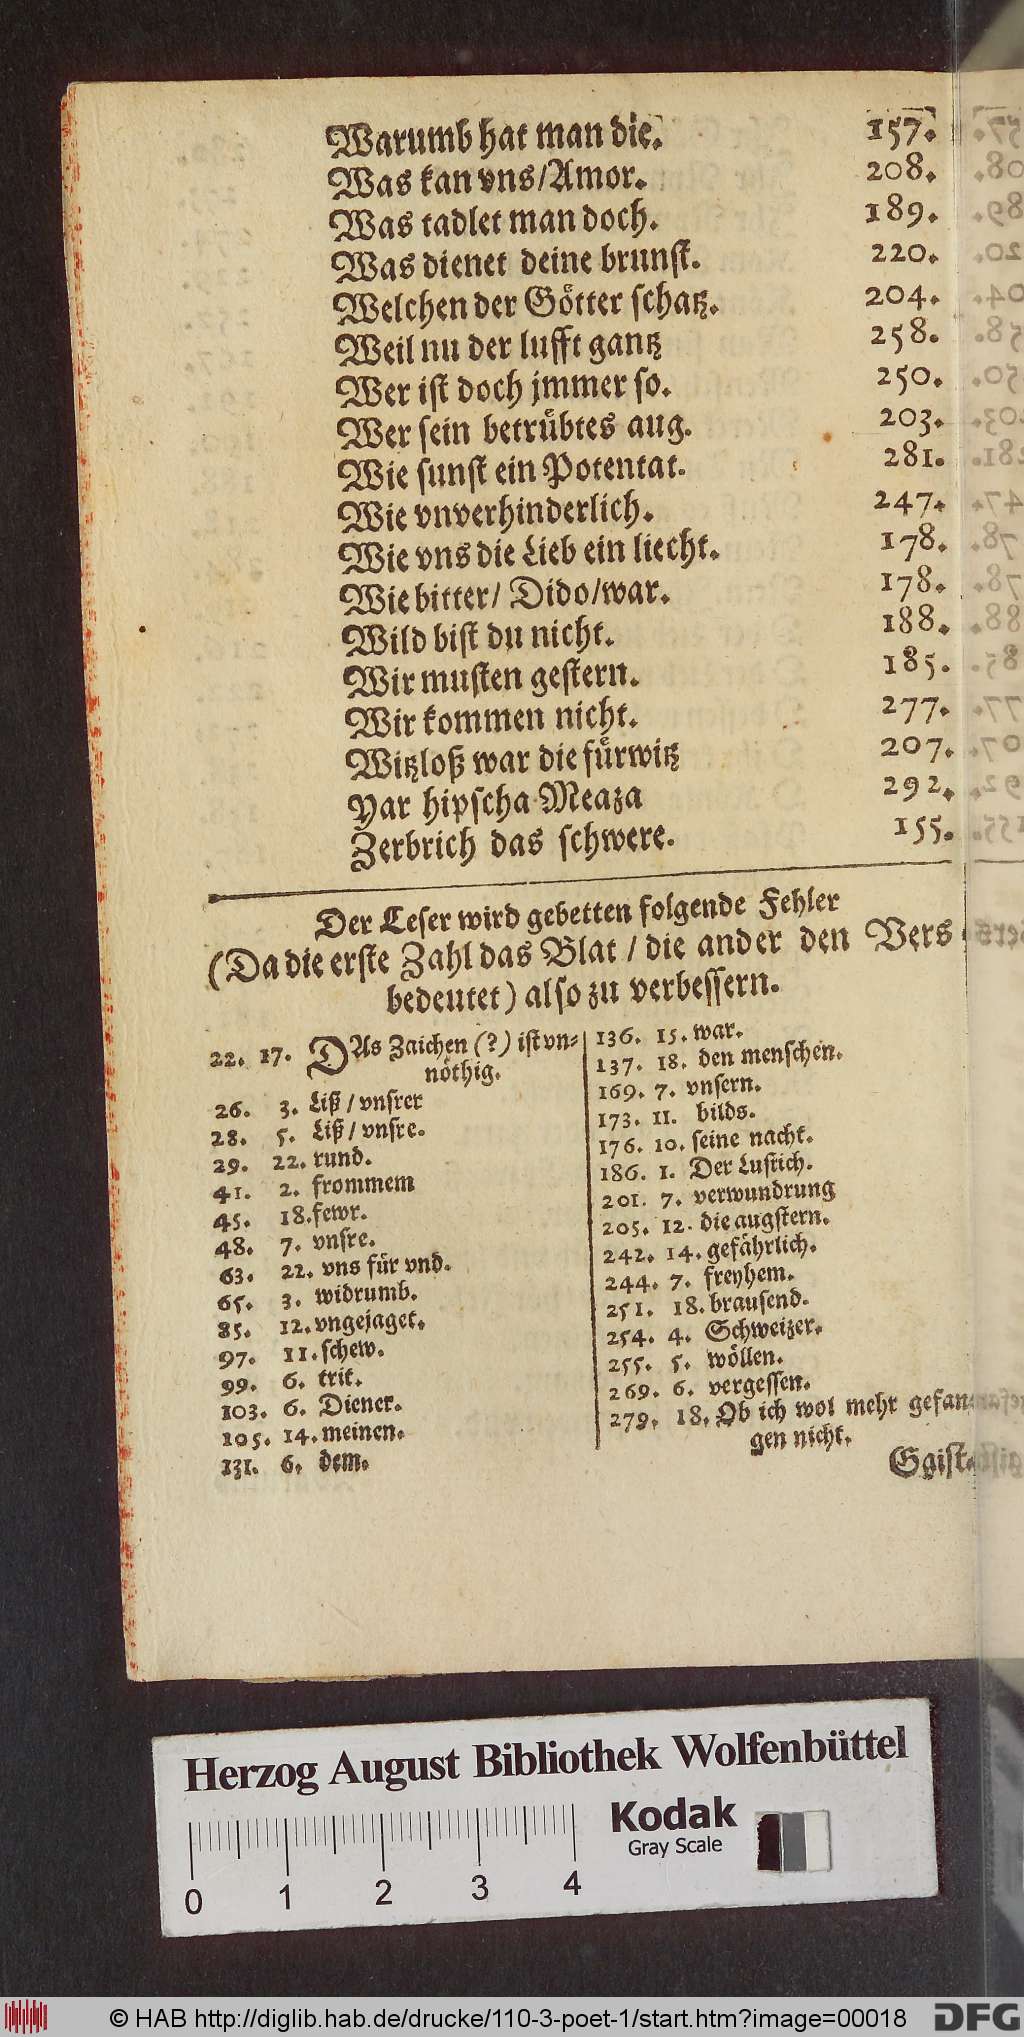 Warumb hat man die. 157.
Was kan vns/Amor. 208.
Was tadlet man doch. 189.
Was dienet deine brunst. 220.
Welchen der Götter schatz. 204.
Weil nu der lufft gantz 258.
Wer ist doch jmmer so. 250.
Wer sein betrübtes aug. 203.
Wie sunst ein Potentat. 281.
Wie vnverhinderlich. 247.
Wie vns die Lieb ein liecht. 178.
Wie bitter/ Dido/war. 178.
Wild bist du nicht. 188.
Wir musten gestern. 185.
Wir kommen nicht. 277.
Witzloß war die fürwitz 207.
Yar hipscha Meaza 292.
Zerbrich das schwere. 155.
Der Leser wird gebetten folgende Fehler
(Da die erste Zahl das Blat / die ander den Vers
bedeutet) also zu verbessern.
22. 17. DAs Zaichen (?) ist vn-
nöthig.
26. 3. Liß / vnsrer
28. 5. Liß / vnsre.
29. 22. rund.
41. 2. frommem
45. 18. fewr.
48. 7. vnsre.
63. 22. vns für vnd.
65. 3. widrumb.
85. 12. vngejaget.
97. 11. schew.
99. 6. trit.
103. 6. Diener.
105. 14. meinen.
131. 6. dem.
136. 15. war.
137. 18. den menschen.
169. 7. vnsern.
173. 11. bilds.
176. 10. seine nacht.
186. 1. Der Lustich.
201. 7. verwundrung
205. 12. die augstern.
242. 14. gefährlich.
244. 7. freyhem.
251. 18. brausend.
254. 4. Schweizer.
255. 5. wöllen.
269. 6. vergessen.
279. 18. Ob ich wol mehr gefan-
gen nicht.
Gaist-
Herzog August Bibliothek Wolfenbüttel
Kodak
Gray Scale
0 1 2 3 4
© HAB http://diglib.hab.de/drucke/110-3-poet-1/start.htm?image=00018
DFG